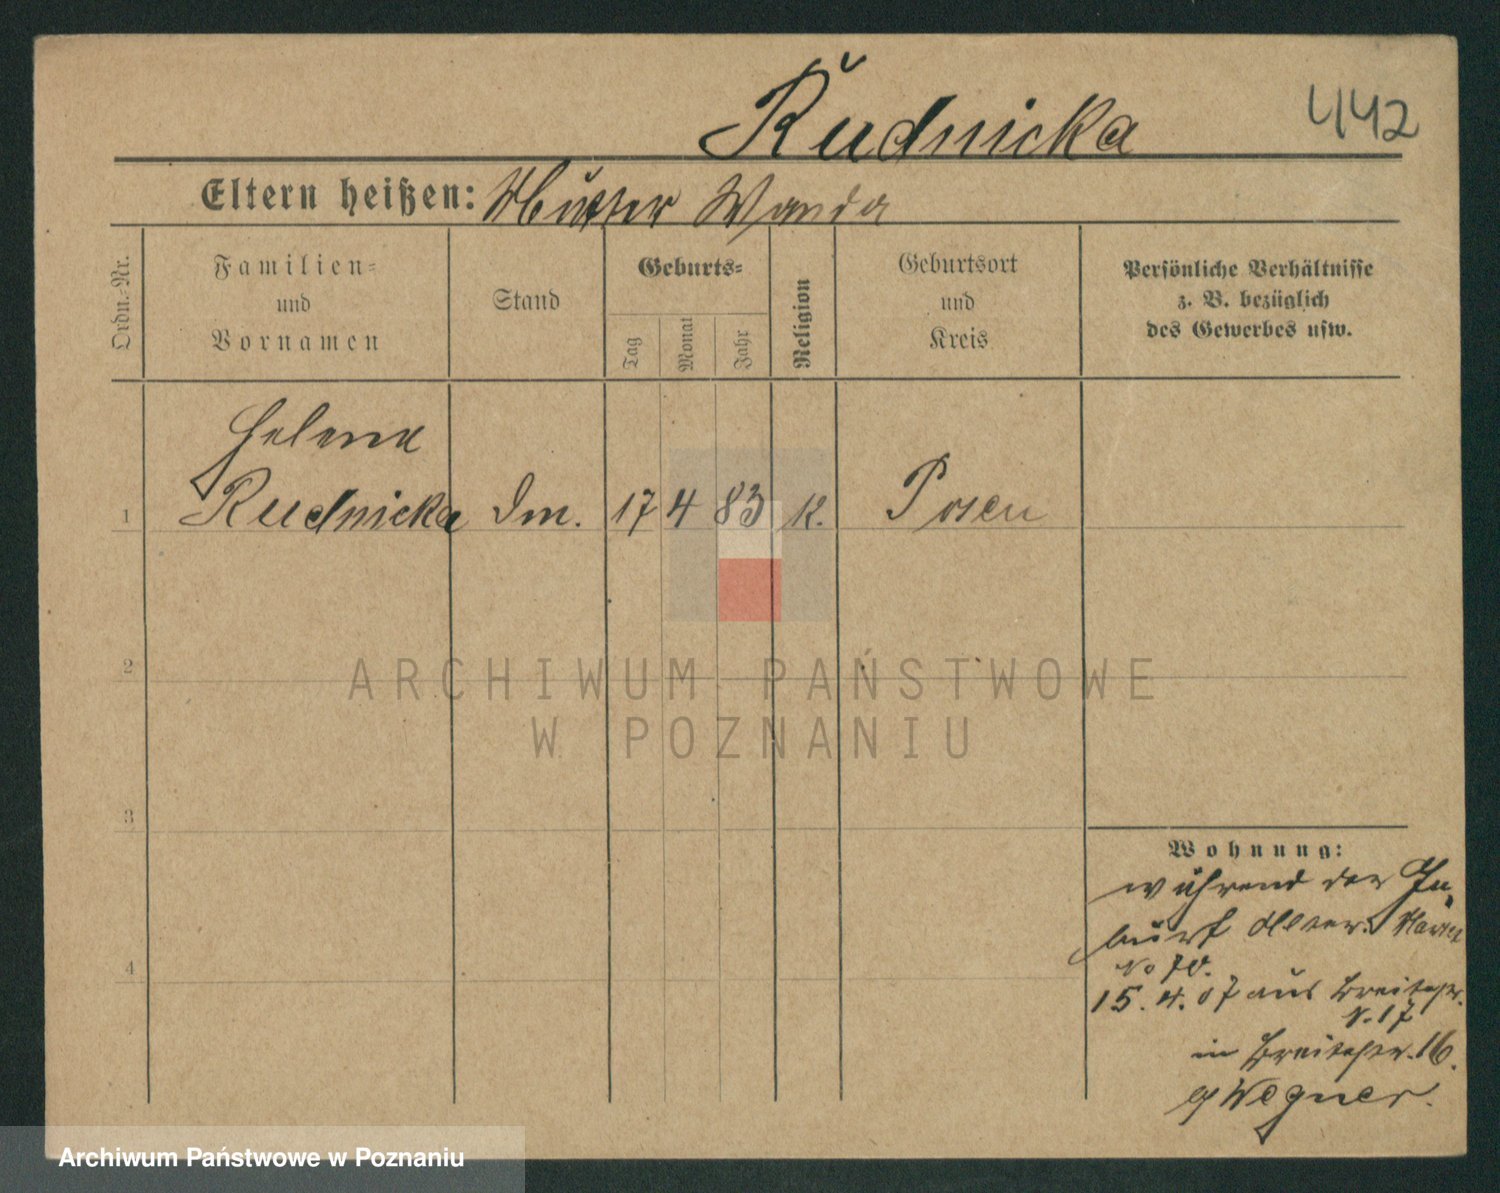 Rudnicka
442
Eltern heißen: Mutter Wanda
Ordn.-Nr.
Familien-
und
Vornamen
Stand
Geburts-
Tag
Monat
Jahr
Religion
Geburtsort
und
Kreis
Persönliche Verhältnisse
z. B. bezüglich
des Gewerbes usw.
Helena
1 Rudnicka 17 4 83 K. Posen
2
3
4
Wohnung:
während der
No 70.
15. 4. 07 aus Breitestr.
No 17
in Breitestr. 16.
Wegner.
ARCHIWUM PAŃSTWOWE
W POZNANIU
Archiwum Państwowe w Poznaniu